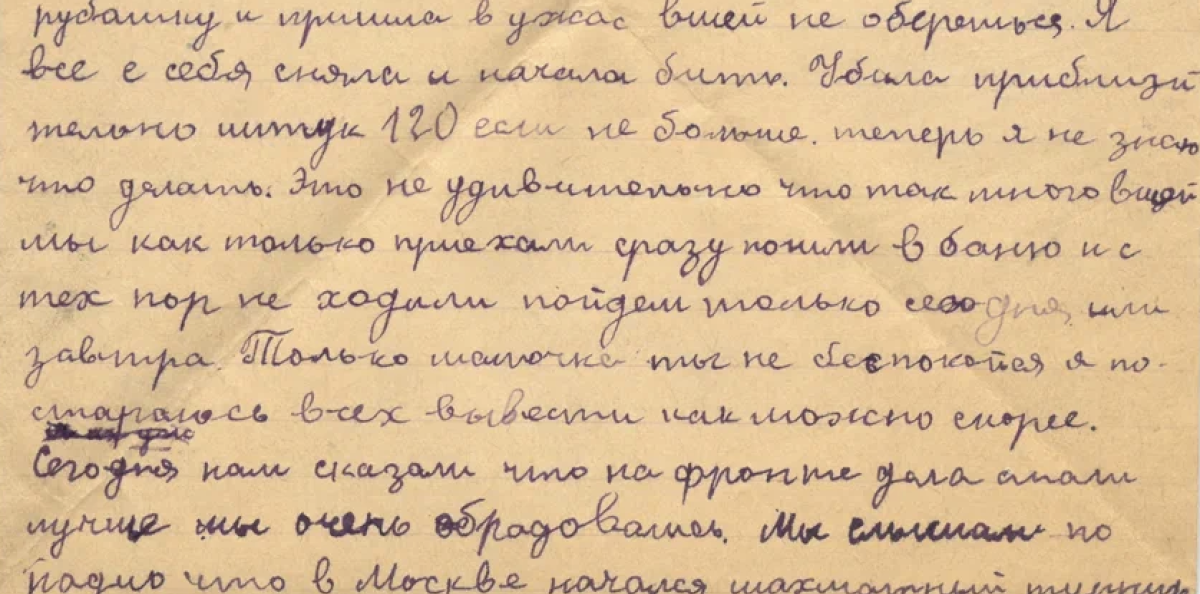 рубашку и пришла в ужас вшей не оберешься. Я
все с себя сняла и начала бить. Убила приблизи
тельно штук 120 если не больше. теперь я не знаю
что делать. Это не удивительно что так много вшей
мы как только приехали сразу пошли в баню и с
тех пор не ходили пойдем только сегодня или
завтра. Только мамочка ты не беспокойся я по-
стараюсь всех вывести как можно скорее.
Сегодня нам сказали что на фронте дела стали
лучше мы очень обрадовались. Мы слышали по
радио что в Москве начался шахматный турнир